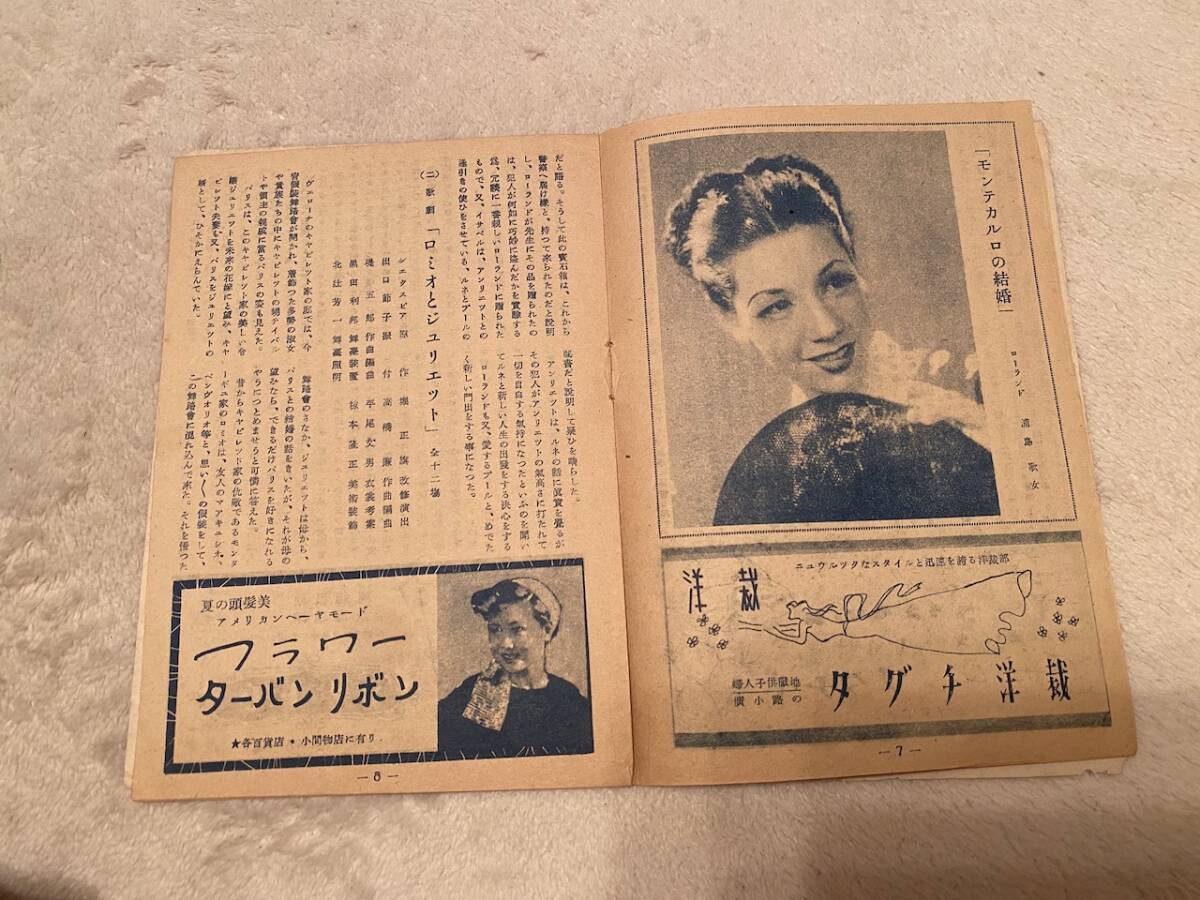 「モンテカルロの結婚」
ローランド 浦島歌女
ニュウルックなスタイルと迅速を誇る洋裁部
洋裁
婦人子供服地
横小路の
タグチ洋裁
—7—
だと語る。そうして此の寶石箱は、これから
警察へ届け樣と、持つて來られたのだと說明
し、ローランドが先生にその品を贈られたの
は、犯人が何如に巧妙に盜んだかを實驗する
爲、冗談に一番親しいローランドに贈られた
もので、又、イサベルは、アンリエットとの
逢引きの使ひをさせている、ルネとアールの
祕書だと說明して疑ひを晴らした。
アンリエットは、ルネの話に眞實を覺るが
その犯人がアンリエットの氣高さに打たれて
一切を自白する氣持になつたといふのを聞い
てルネと新しい人生の出發をする決心をする
ローランドも又、愛するアールと、めでた
く新しい門出をする事になつた。
(二)歌劇「ロミオとジュリエット」 全十二場
シェクスピア原作 堀正旗改修演出
出口節子振付 高橋廉作曲編曲
磯五郎作曲編曲 平尾文男衣裳考案
黑田利邦舞臺裝置 椋本隆正美術裝飾
北辻芳一舞臺照明
ヴェローナのキャピレット家の邸では、今
宵假裝舞踏會が開かれ、着飾つた多勢の淑女
や貴族たちの中にキャピレットの甥ティバル
トや領主の親戚に當るパリスの姿も見えた。
パリスは、このキャピレット家の美しい令
孃ジュリエットを未來の花嫁にと望み、キャ
ピレット夫妻も又、パリスをジュリエットの
婿として、ひそかにえらんでいた。
舞踏會のさなか、ジュリエットは母から、
パリスとの結婚の話をきいたが、それが母の
望みなら、できるだけパリスを好きになれる
やうにつとめませうと可憐に答えた。
昔からキャピレット家の仇敵であるモンタ
ーギュ家のロミオは、友人のマアキュシオ、
ベンヴオリオ等と、思い〱の假裝をして、
この舞踏會に混れ込んで來た。それを悟つた
夏の頭髮美
アメリカンヘーヤモード
フラワー
ターバンリボン
★各百貨店・小間物店に有り
—8—